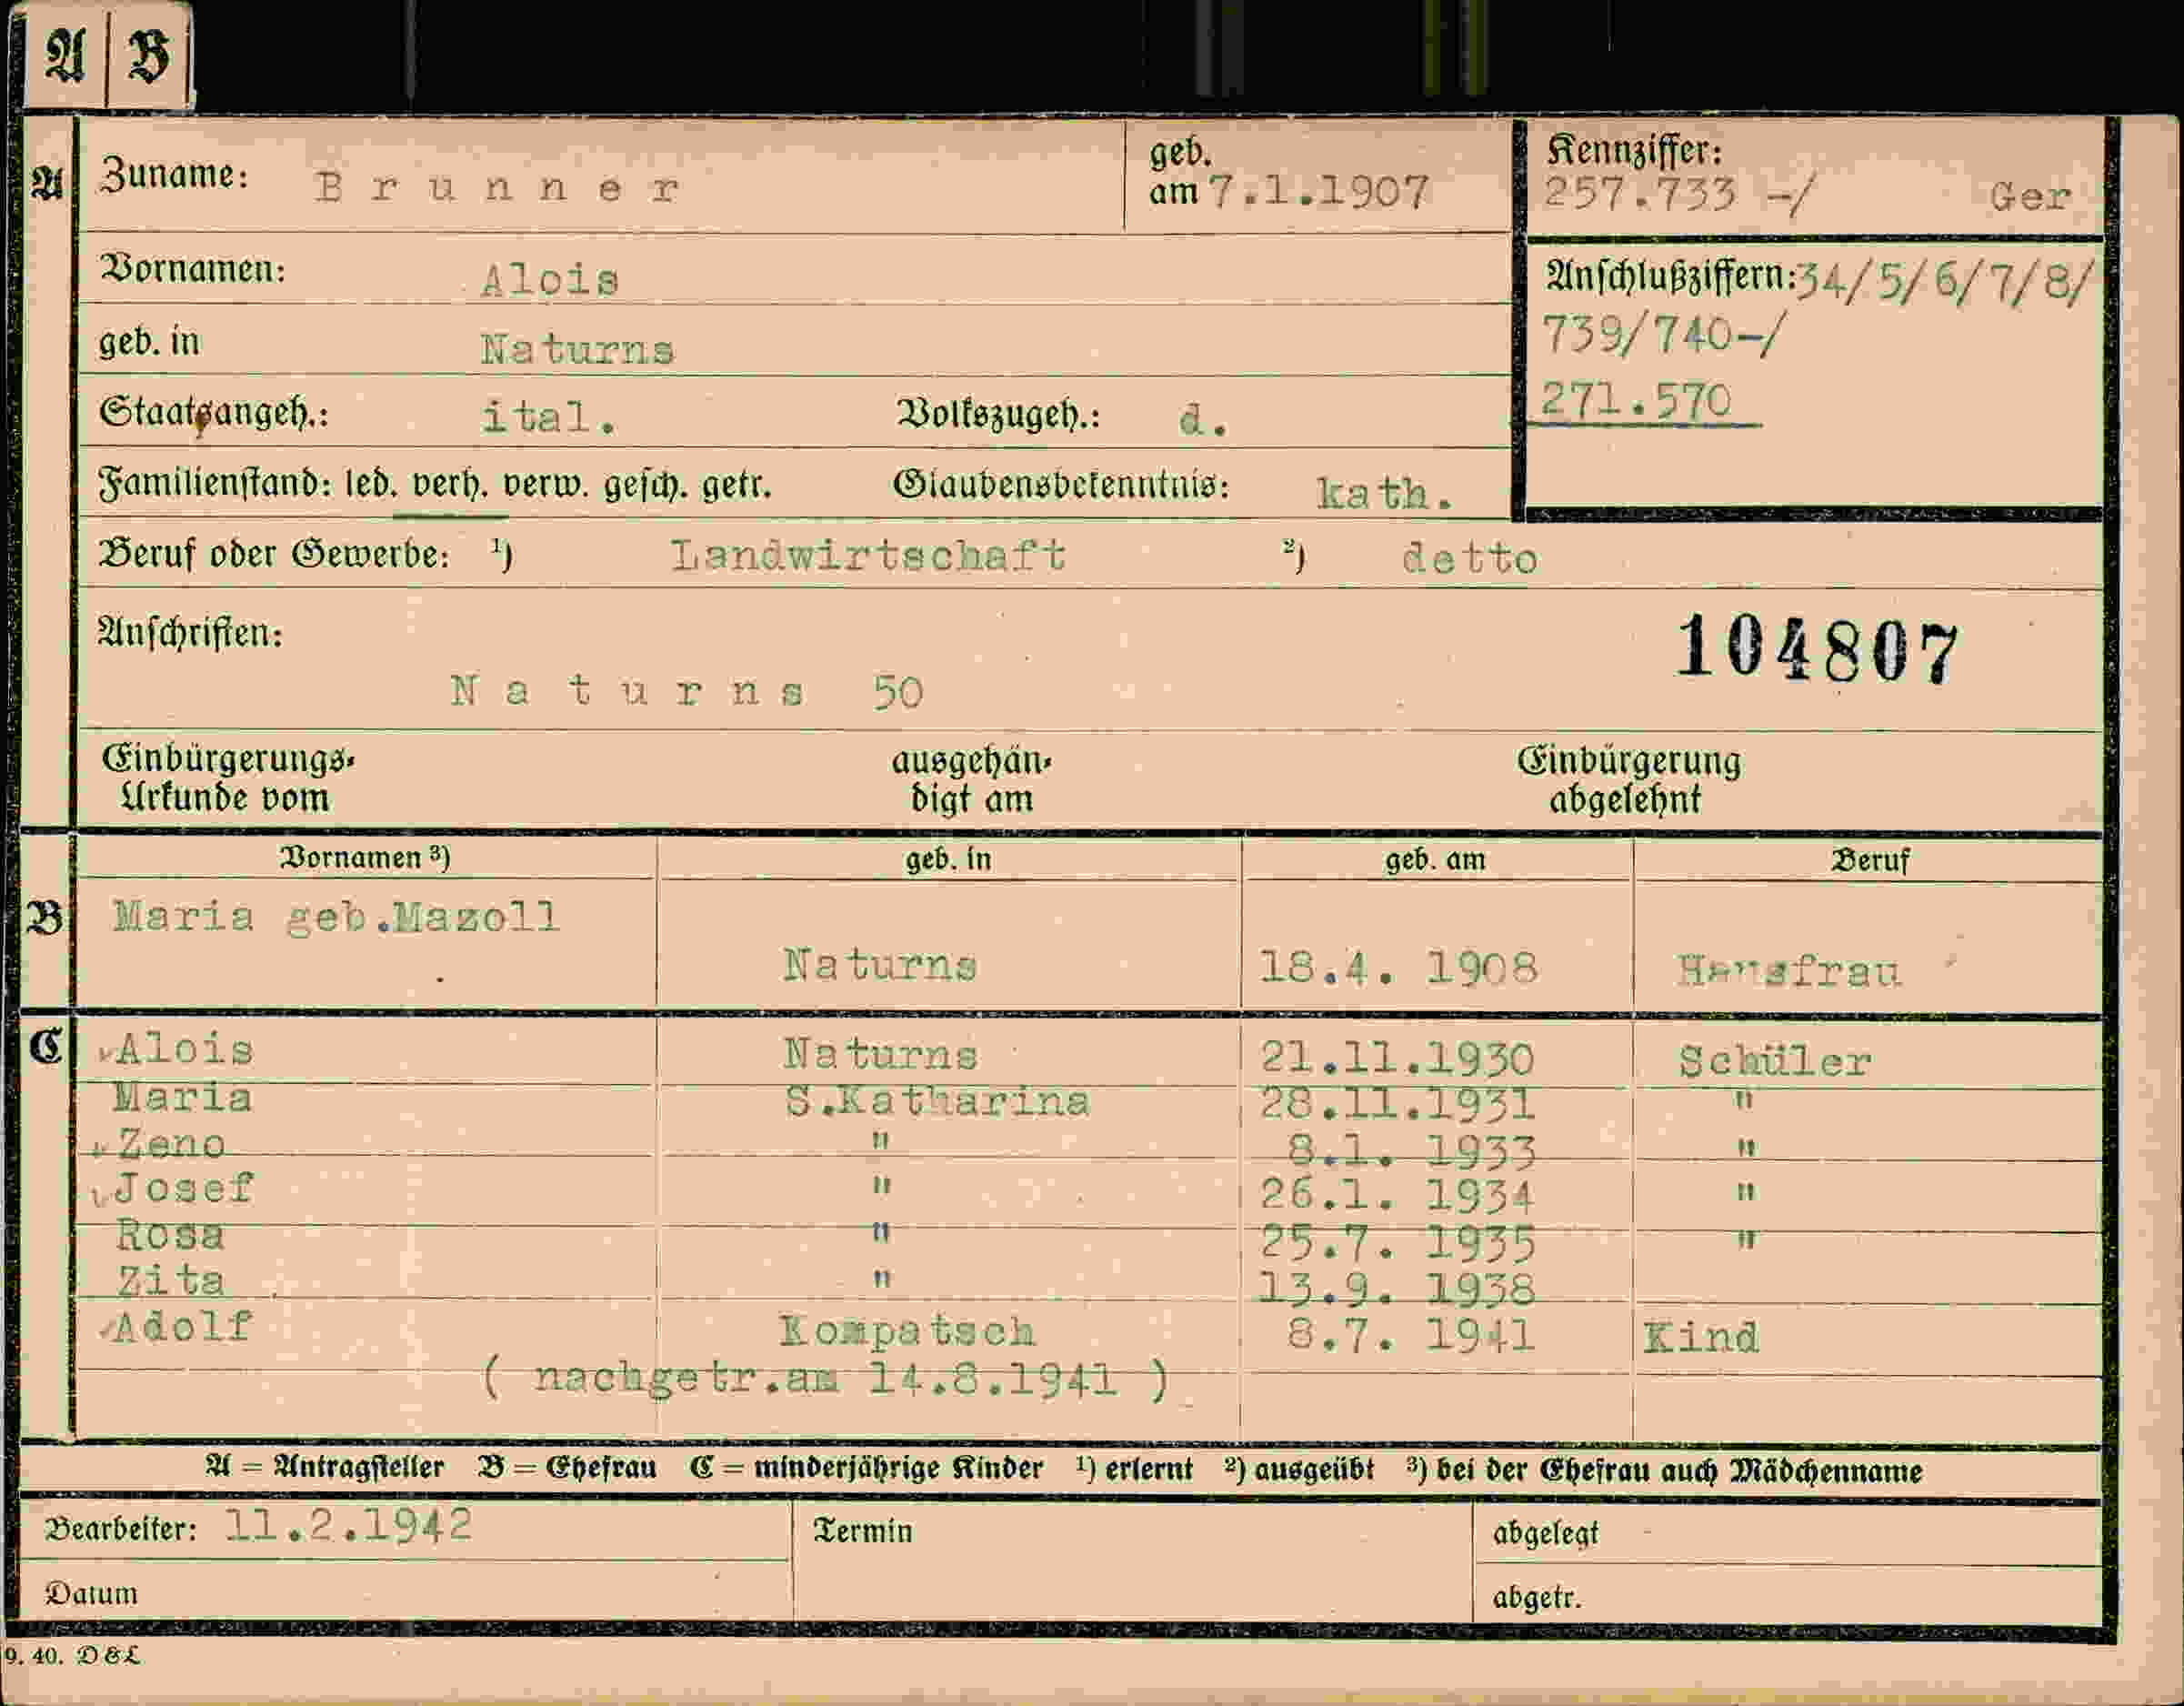 A B
A Zuname: B r u n n e r geb. am 7.1.1907 Kennziffer: 257.733 -/ Ger
Vornamen: Alois Anschlußziffern: 34/5/6/7/8/
geb. in Naturns 739/740-/
Staatsangeh.: ital. Volkszugeh.: d. 271.570
Familienstand: led. verh. verw. gesch. getr. Glaubensbekenntnis: kath.
Beruf oder Gewerbe: ¹) Landwirtschaft ²) detto
Anschriften: 104807
N a t u r n s 50
Einbürgerungs- ausgehän- Einbürgerung
Urkunde vom digt am abgelehnt
Vornamen ³) geb. in geb. am Beruf
B Maria geb.Mazoll
Naturns 18.4. 1908 Hausfrau
C Alois Naturns 21.11.1930 Schüler
Maria S.Katharina 28.11.1931 "
Zeno " 8.1. 1933 "
Josef " 26.1. 1934 "
Rosa " 25.7. 1935 "
Zita " 13.9. 1938
Adolf Kompatsch 8.7. 1941 Kind
( nachgetr.am 14.8.1941 )
A = Antragsteller B = Ehefrau C = minderjährige Kinder ¹) erlernt ²) ausgeübt ³) bei der Ehefrau auch Mädchenname
Bearbeiter: 11.2.1942 Termin abgelegt
Datum abgetr.
9. 40. D&L